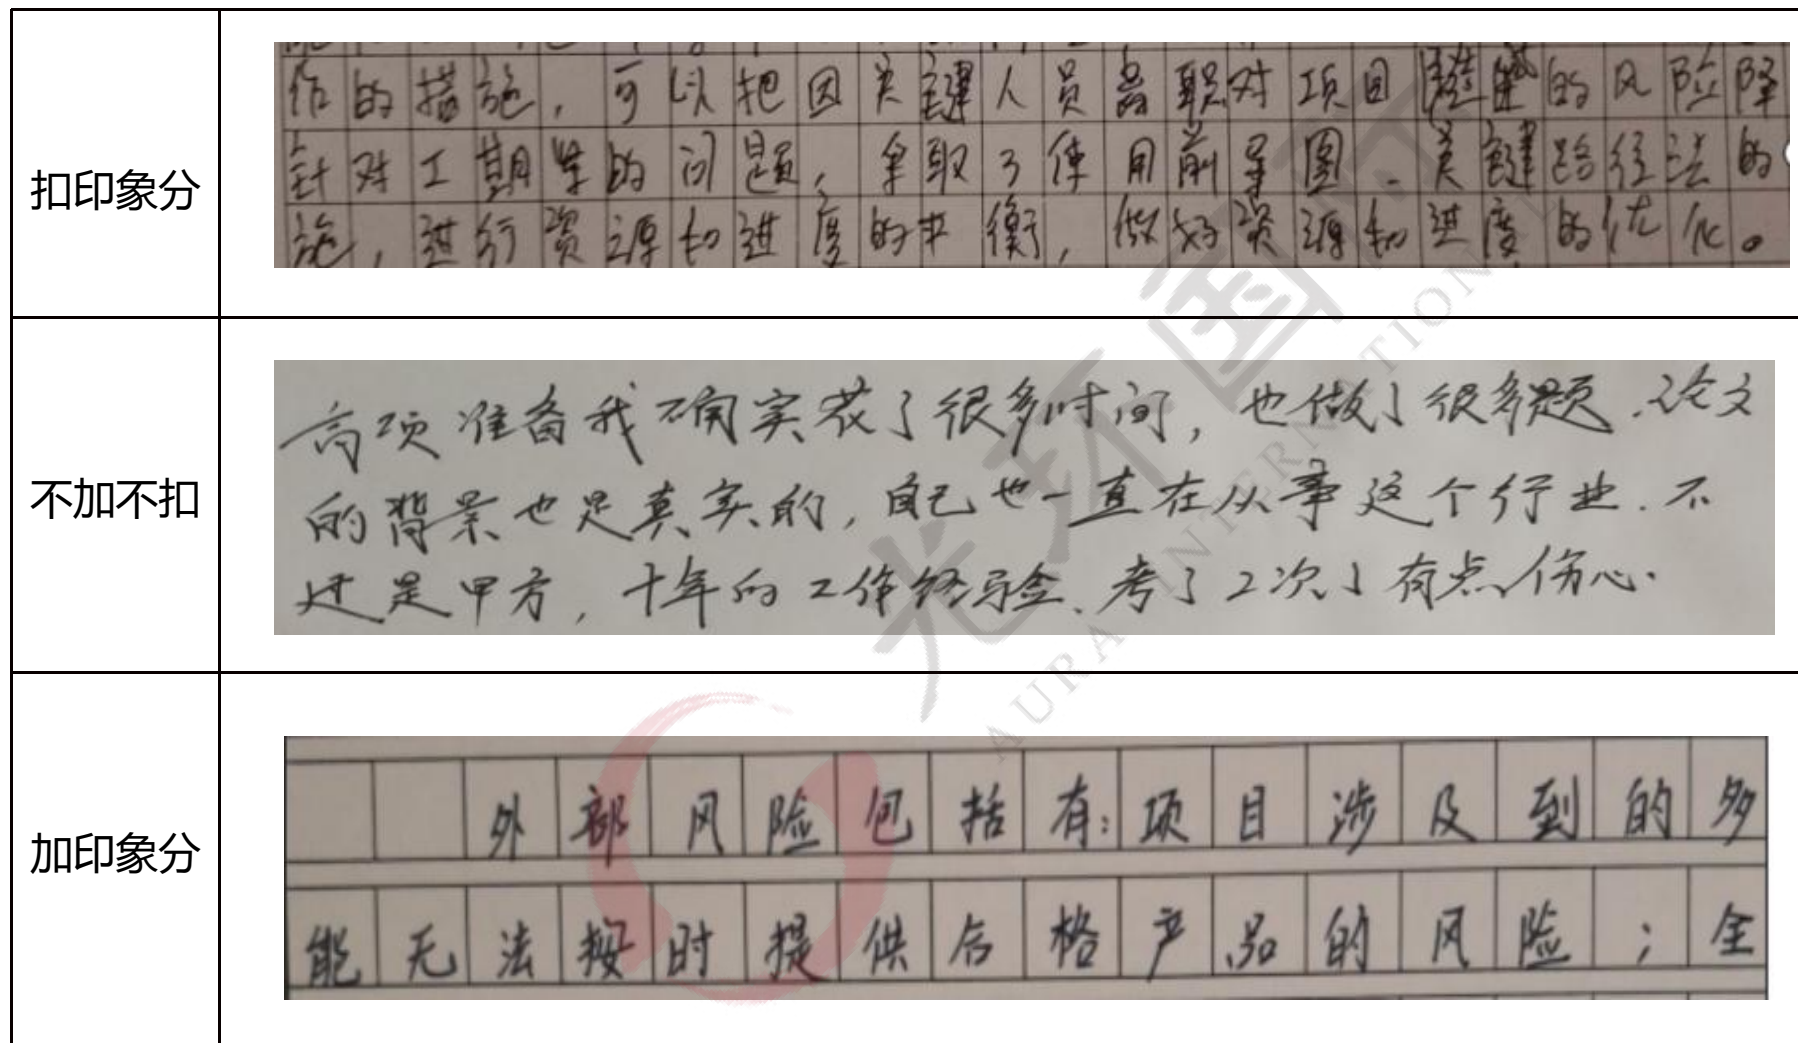 扣印象分
作的措施，可以把因关键人员离职对项目的风险降
针对工期紧的问题，采取了使用前导图、关键路径法的
施，进行资源和进度的平衡，做好资源和进度的优化。
不加不扣
高项准备我确实花了很多时间，也做了很多题.论文
的背景也是真实的，自己也一直在从事这个行业.不
过是甲方，十年的工作经验、考了2次了有点伤心.
加印象分
外部风险包括有:项目涉及到的多
能无法按时提供合格产品的风险；全
光环国际
AURA INTERNATIONAL